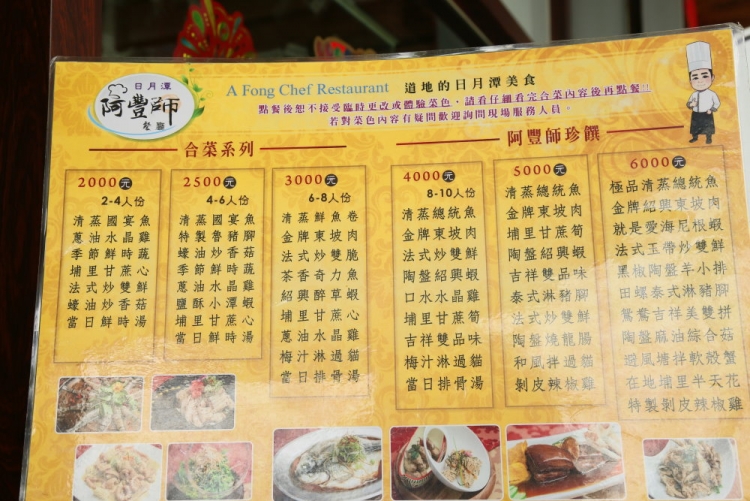 日月潭
阿豐師
餐廳
A Fong Chef Restaurant 道地的日月潭美食
點餐後恕不接受臨時更改或體驗菜色、請看仔細看完合菜內容後再點餐!!
若對菜色內容有疑問歡迎詢問現場服務人員。
合菜系列
2000元
2-4人份
清蒸國宴魚
蔥油水晶雞
季節鮮時蔬
埔里甘蔗心
法式炒雙鮮
蠔油炒香菇
當日鮮時湯
2500元
4-6人份
清蒸國宴魚
特製魯豬腳
蠔油炒香菇
季節鮮時蔬
蔥油水晶雞
鹽酥小潭蝦
埔里甘蔗心
當日鮮時湯
3000元
6-8人份
清蒸鮮魚卷
金牌東坡肉
法式炒雙脆
茶香奇力魚
紹興醉草蝦
埔里甘蔗心
蔥油水晶雞
梅汁淋過貓
當日排骨湯
阿豐師珍饌
4000元
8-10人份
清蒸總統魚
金牌東坡肉
法式炒雙鮮
陶盤紹興蝦
口水水晶雞
埔里甘蔗筍
吉祥雙品味
梅汁淋過貓
當日排骨湯
5000元
清蒸總統魚
金牌東坡肉
埔里甘蔗筍
陶盤紹興蝦
吉祥雙品味
泰式淋豬腳
法式炒雙鮮
陶盤燒龍腸
和風拌過貓
剝皮辣椒雞
6000元
極品清蒸總統魚
金牌紹興東坡肉
就是愛海尼根蝦
法式玉帶炒雙鮮
黑椒陶盤羊小排
田螺泰式淋豬腳
鴛鴦吉祥美雙拼
陶盤麻油綜合菇
避風塘拌軟殼蟹
在地埔里半天花
特製剝皮辣椒雞